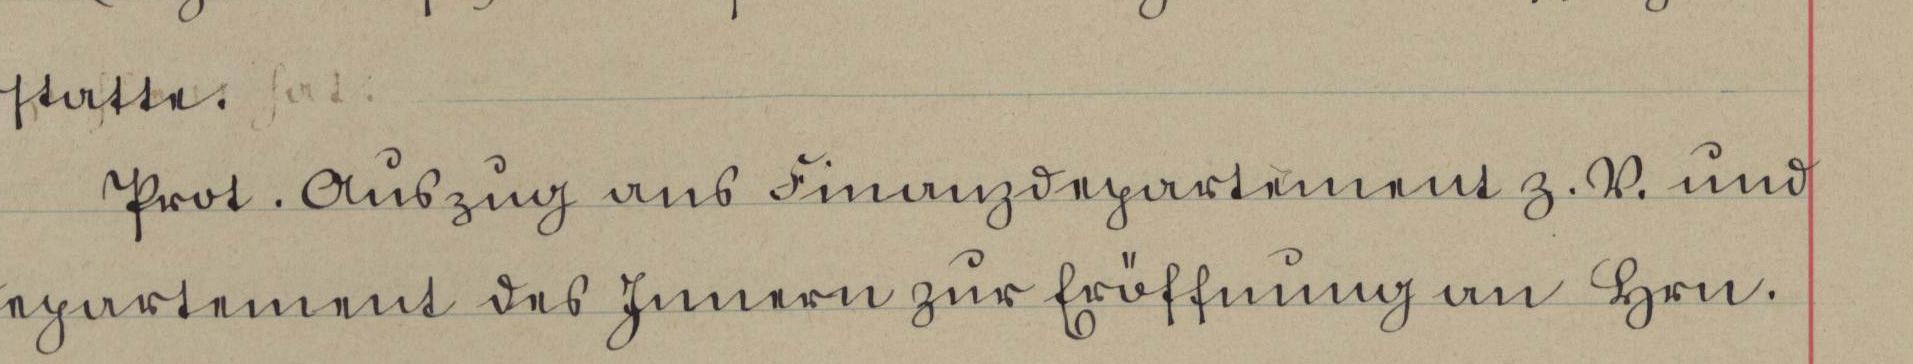 statte.
Prot. Auszug ans Finanzdepartement z. V. und
epartement des Innern zur Eröffnung an Hrn.